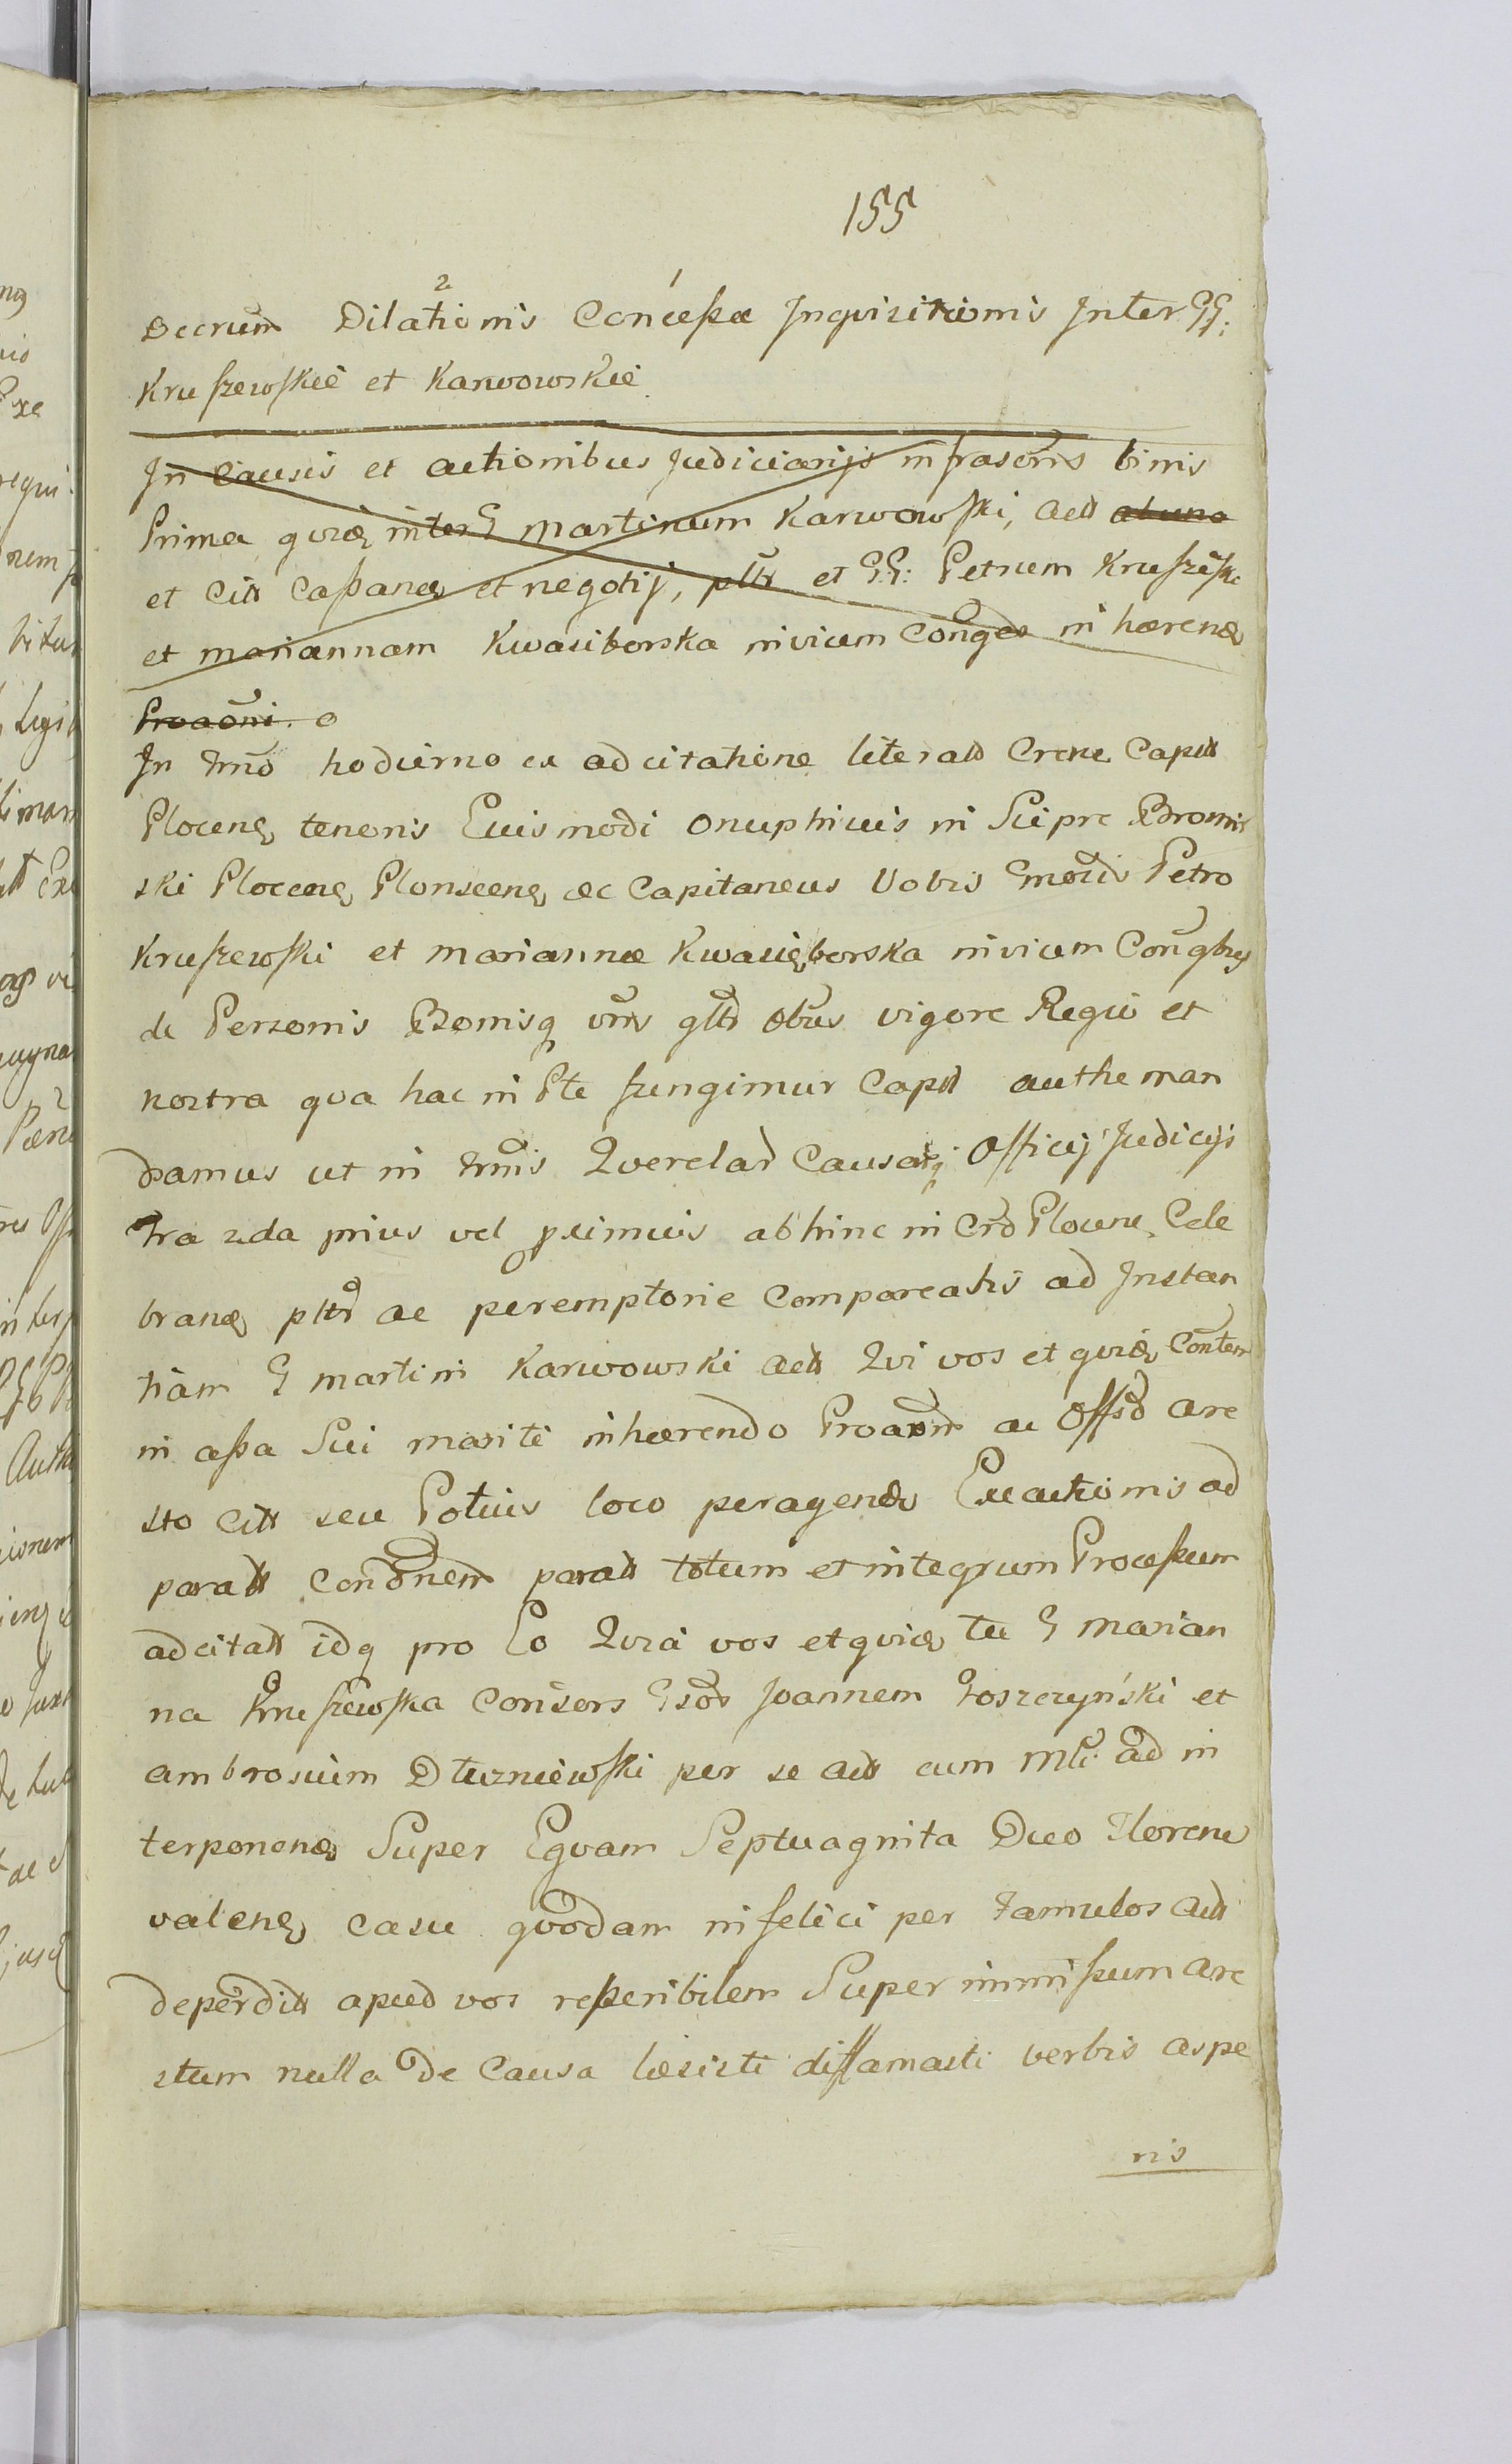 155
2 1
Decrum Dilationis Concessæ Inquisitionis Inter GG:
Kruszewskie et Karwowskie
In Causis et actionibus Judiciarijs infrascris binis
Prima quidę inter G Martinum Karwowski, act ab una
et Citt Cassanę et negotij, pltr et GG: Petrum Kruszewski
et Mariannam Kwasiborska invicem Conges in hærenę
Proaoni. o
In trmo hodierno ex adcitatione literali Crene Captt
Plocenę tenoris Eiusmodi Onuphrius in Siepre Bromir
ski Plocenę Plonscenę &c Capitaneus Vobis Gnosis Petro
Kruszewski et Mariannæ Kwasięborska invicem Congbus
de Personis Bonisq vris gltr obus vigore Regia et
nostra qva hac in Pte fungimur Captt authe man
damus ut in trmis Querelar Causarq Officij Judicijs
tra nda prius vel primuis abhinc in Cro Plocene Cele
brandę pltr ac peremptorie Compareatis ad Instan
tiam G Martini Karwowski act Qui vos et quidę Contem
in assa Sui mariti inhærendo Proaom ac Offso are
sto Citt seu Potius loco peragendę Executionis ad
paratt Condonem paratt totum et integrum Processum
adcitatt idq pro Eo Quia vos et quidę tu G Marian
na Kruszewska Consors Gsos Joannem Łoszczyński et
Ambrosium Dłuzniewski per se act cum Mli ad in
terponendę Super Eqvam Septuaginta Duo Florenę
valenę casu qvodam infelici per Famulos act
deperditt apud vos reperibilem Super immissum are
stum nulla De Causa læsisti diffamasti verbis aspe
ris